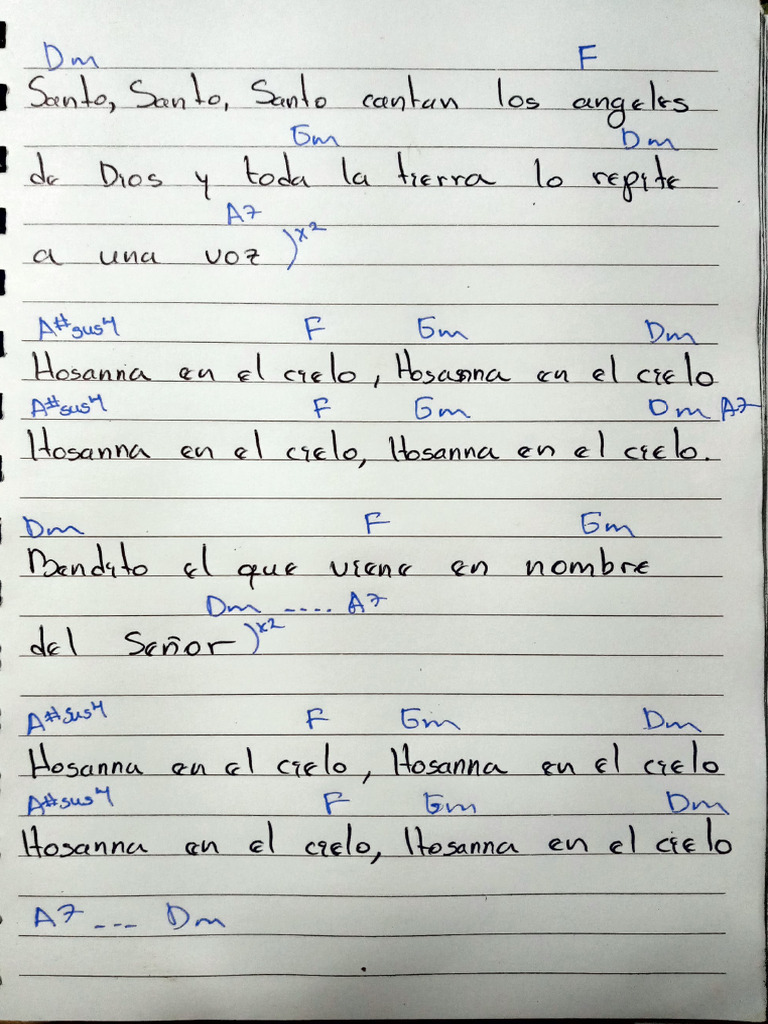 Dm F
Santo, Santo, Santo cantan los angeles
Gm Dm
de Dios y toda la tierra lo repite
A7
a una voz )x2
A#sus4 F Gm Dm
Hosanna en el cielo, Hosanna en el cielo
A#sus4 F Gm Dm A7
Hosanna en el cielo, Hosanna en el cielo.
Dm F Gm
Bendito el que viene en nombre
Dm .... A7
del Señor )x2
A#sus4 F Gm Dm
Hosanna en el cielo, Hosanna en el cielo
A#sus4 F Gm Dm
Hosanna en el cielo, Hosanna en el cielo
A7 --- Dm